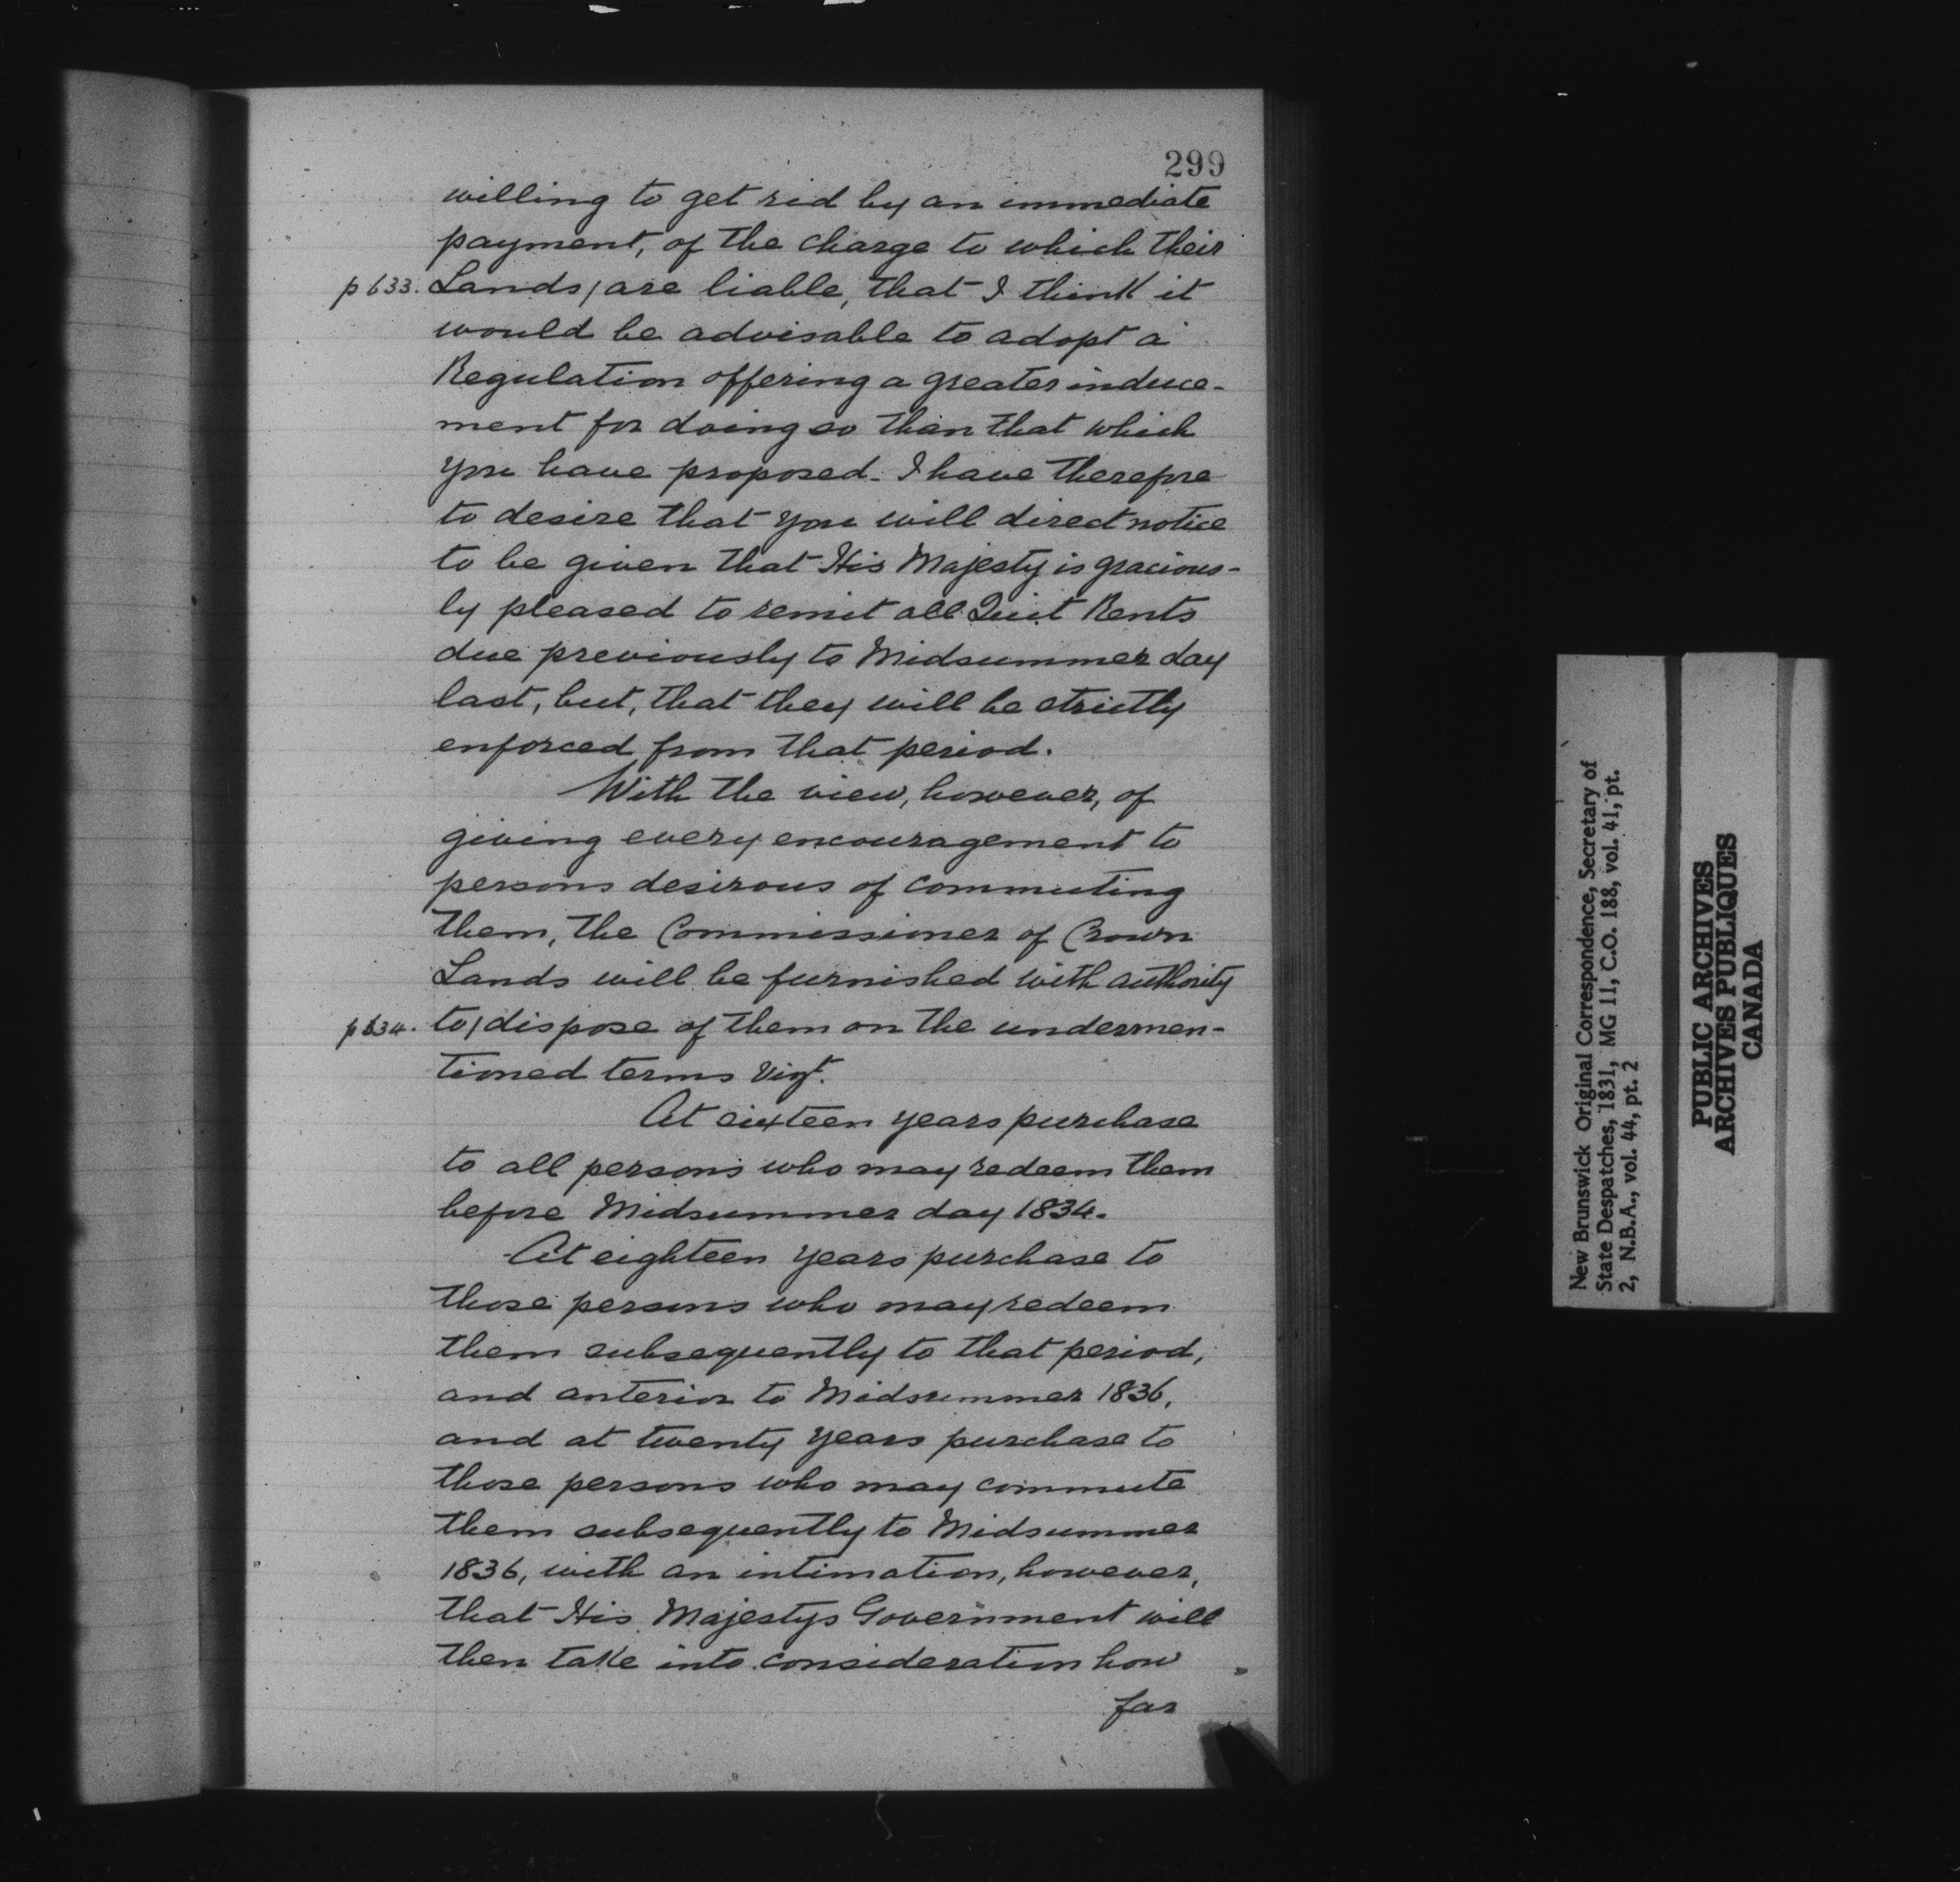 299
willing to get rid by an immediate
payment, of the charge to which their
p 633. Lands / are liable, that I think it
would be advisable to adopt a
Regulation offering a greater induce-
ment for doing so than that which
you have proposed. I have therefore
to desire that you will direct notice
to be given that His Majesty is gracious-
ly pleased to remit all Quit Rents
due previously to Midsummer day
last, but, that they will be strictly
enforced from that period.
With the view, however, of
giving every encouragement to
persons desirous of commuting
them, the Commissioner of Crown
Lands will be furnished with authority
p 634. to / dispose of them on the undermen-
tioned terms Vizt.
At sixteen years purchase
to all persons who may redeem them
before Midsummer day 1834.
At eighteen years purchase to
those persons who may redeem
them subsequently to that period,
and anterior to Midsummer 1836,
and at twenty years purchase to
those persons who may commute
them subsequently to Midsummer
1836, with an intimation, however,
that His Majestys Government will
then take into consideration how
far
New Brunswick Original Correspondence, Secretary of
State Despatches, 1831, MG 11, C.O. 188, vol. 41, pt.
2, N.B.A., vol. 44, pt. 2
PUBLIC ARCHIVES
ARCHIVES PUBLIQUES
CANADA